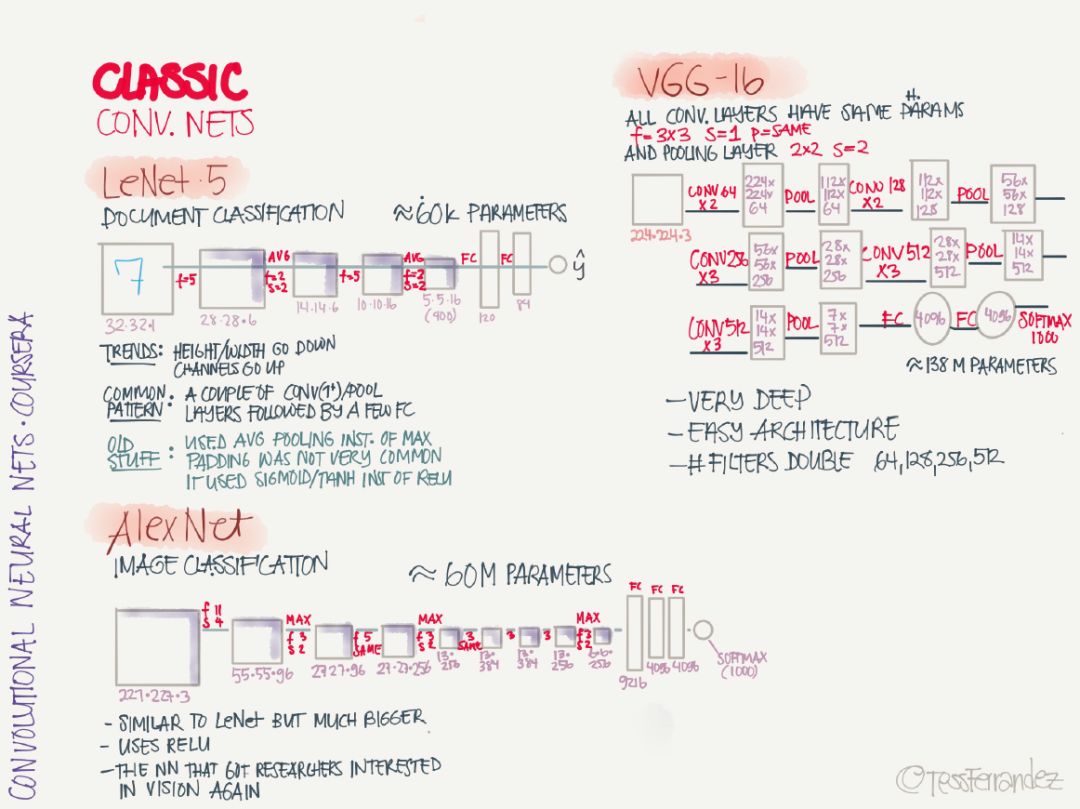 CLASSIC
CONV. NETS
LeNet·5
DOCUMENT CLASSIFICATION ≈60K PARAMETERS
7
32·32·1
f=5
28·28·6
AVG
f=2
S=2
14·14·6
f=5
10·10·16
AVG
f=2
S=2
5·5·16
(400)
FC
120
FC
84
ŷ
TRENDS: HEIGHT/WIDTH GO DOWN
CHANNELS GO UP
COMMON PATTERN: A COUPLE OF CONV(1+)/POOL
LAYERS FOLLOWED BY A FEW FC
OLD STUFF: USED AVG POOLING INST. OF MAX
PADDING WAS NOT VERY COMMON
IT USED SIGMOID/TANH INST OF RELU
AlexNet
IMAGE CLASSIFICATION ≈ 60M PARAMETERS
227·227·3
f 11
S 4
55·55·96
MAX
f 3
S 2
27·27·96
f 5
SAME
27·27·256
MAX
f 3
S 2
13·
256
3
SAME
13·
384
3
13·
384
3
13·
256
MAX
f 3
S 2
6·6·
256
FC
9216
FC
4096
FC
4096
SOFTMAX
(1000)
- SIMILAR TO LeNet BUT MUCH BIGGER
- USES RELU
- THE NN THAT GOT RESEARCHERS INTERESTED
IN VISION AGAIN
VGG-16
ALL CONV. LAYERS HAVE SAME H. PARAMS
f=3×3 S=1 P=SAME
AND POOLING LAYER 2×2 S=2
224·224·3
CONV 64
X2
224×
224×
64
POOL
112×
112×
64
CONV 128
X2
112×
112×
128
POOL
56×
56×
128
CONV 256
X3
56×
56×
256
POOL
28×
28×
256
CONV 512
X3
28×
28×
512
POOL
14×
14×
512
CONV 512
X3
14×
14×
512
POOL
7×
7×
512
FC
4096
FC
4096
SOFTMAX
1000
≈138 M PARAMETERS
- VERY DEEP
- EASY ARCHITECTURE
- # FILTERS DOUBLE 64,128,256,512
CONVOLUTIONAL NEURAL NETS·COURSERA
©TessFerrandez